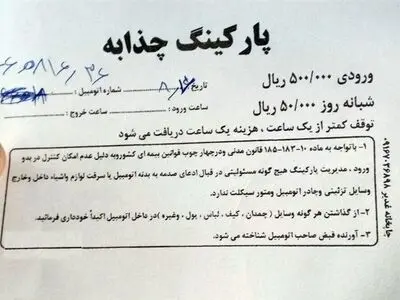 پارکینگ چذابه
ورودی ۵۰۰/۰۰۰ ریال
شبانه روز ۵۰/۰۰۰ ریال
تاریخ ۸/۱۶ شماره اتومبیل :
ساعت ورود : ساعت خروج :
توقف کمتر از یک ساعت ، هزینه یک ساعت دریافت می شود
۱- باتوجه به ماده ۱۰-۱۸۳-۱۸۵ قانون مدنی ودرچهارچوب قوانین بیمه ای کشوروبه دلیل عدم امکان کنترل در بدو
ورود ، مدیریت پارکینگ هیچ گونه مسئولیتی در قبال ادعای صدمه به بدنه اتومبیل یا سرقت لوازم واشیاء داخل وخارج
وسایل تزئینی وچادر اتومبیل وموتور سیکلت ندارد.
۲- از گذاشتن هر گونه وسایل ( چمدان ، کیف ، لباس ، پول ، وغیره )در داخل اتومبیل اکیداً خودداری فرمائید.
۳- آورنده قبض صاحب اتومبیل شناخته می شود.
چاپخانه غدیر